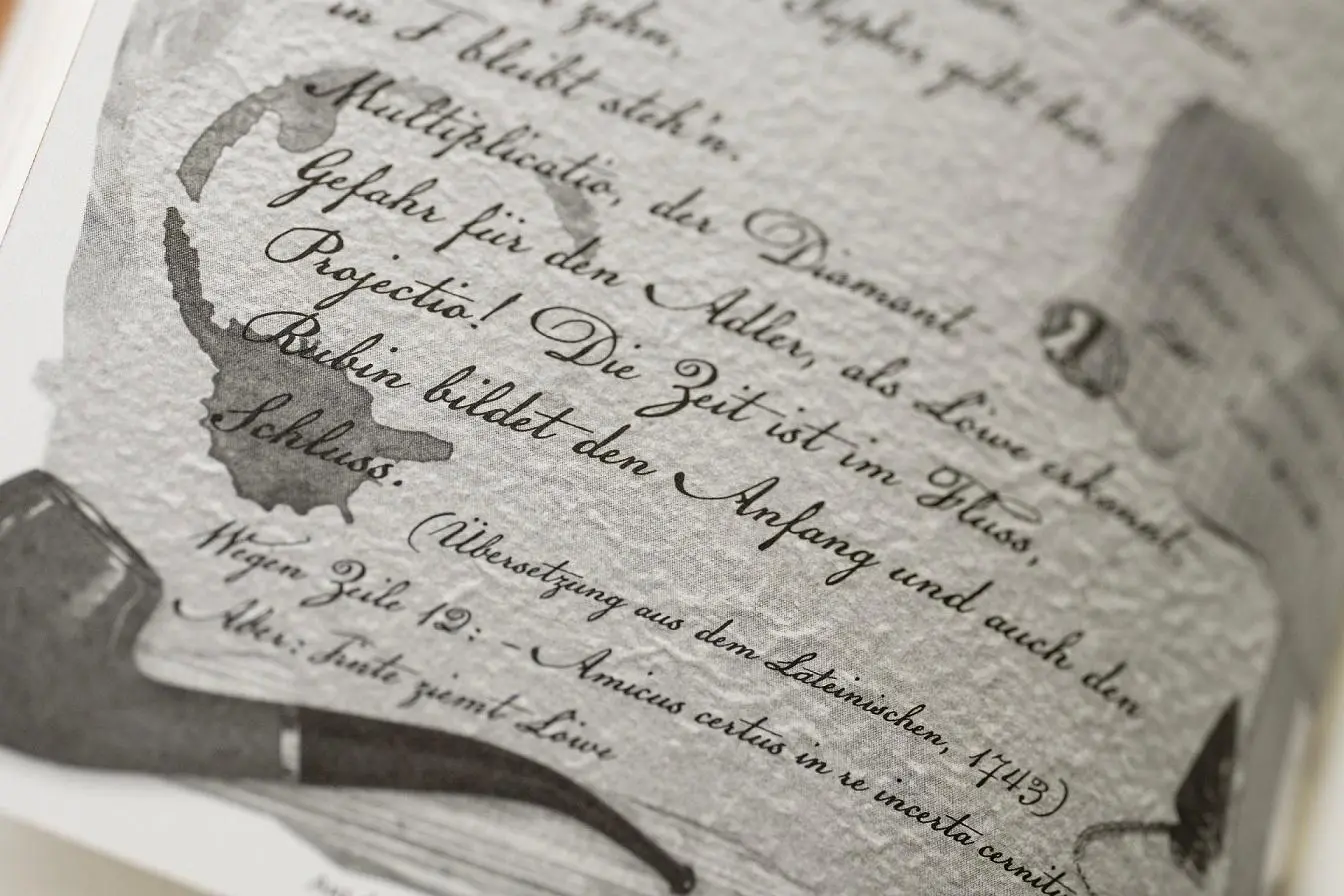 zehn,
gilt
in F bleibt steh'n.
Multiplicatio, der Diamant
Gefahr für den Adler, als Löwe erkannt.
Projectio! Die Zeit ist im Fluss,
Rubin bildet den Anfang und auch den
Schluss.
(Übersetzung aus dem Lateinischen, 1743)
Wegen Zeile 12: - Amicus certus in re incerta
Aber: Tinte ziemt Löwe